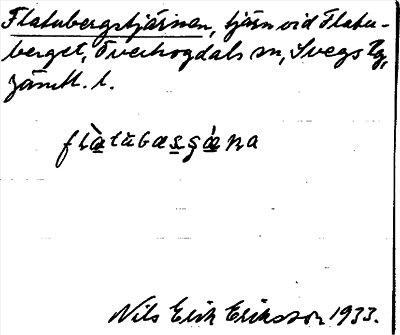 Flatubergstjärnen, tjärn vid Flatu-
berget, Överhogdals sn, Svegs tg,
Jämtl. l.
flàtubasgána
Nils Erik Eriksson 1933.